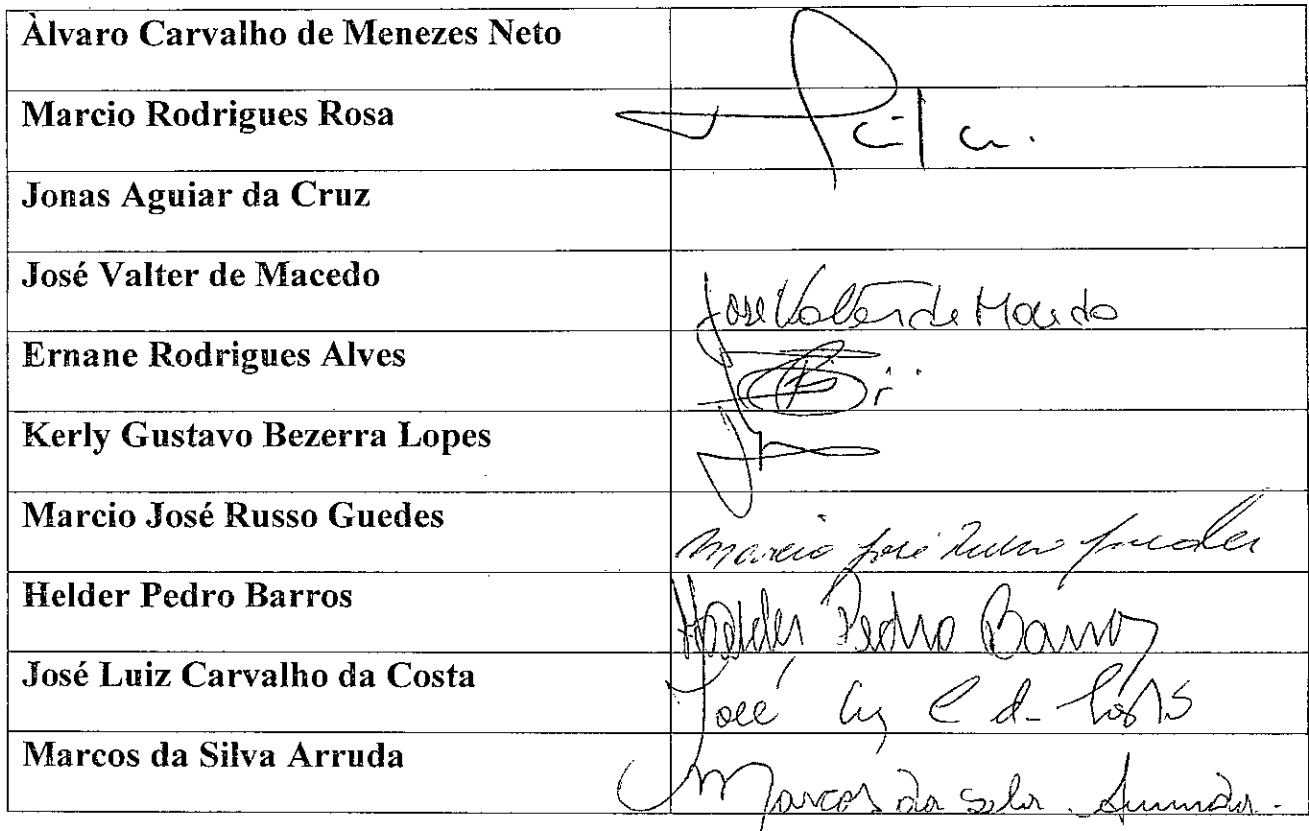 Àlvaro Carvalho de Menezes Neto
Marcio Rodrigues Rosa
Jonas Aguiar da Cruz
José Valter de Macedo José Valter de Macedo
Ernane Rodrigues Alves
Kerly Gustavo Bezerra Lopes
Marcio José Russo Guedes Marcio José Russo Guedes
Helder Pedro Barros Helder Pedro Barros
José Luiz Carvalho da Costa José Luiz C da Costa
Marcos da Silva Arruda Marcos da Silva Arruda.